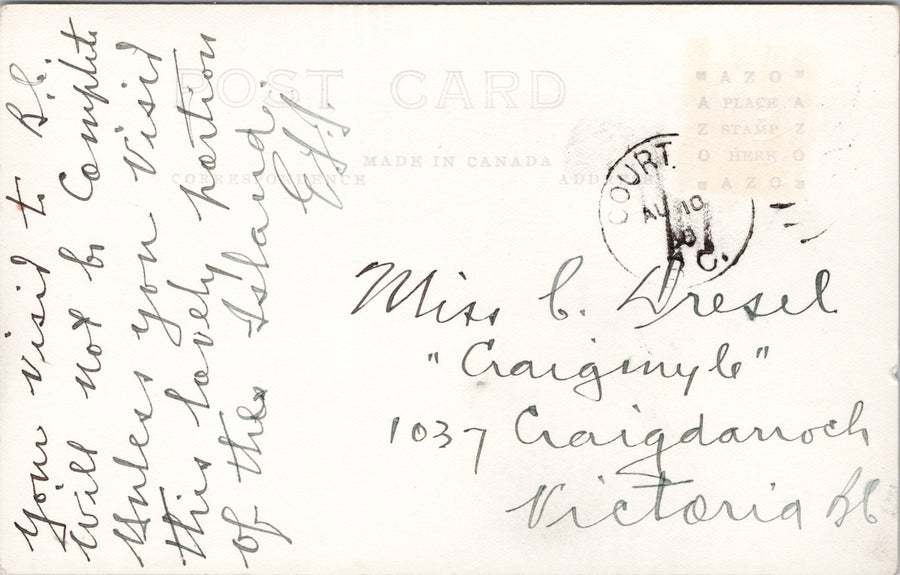 POST CARD
MADE IN CANADA
CORRESPONDENCE
ADDRESS
AZO
A PLACE A
Z STAMP Z
O HERE O
AZO
COURT
AU 10
B.C.
Your visit to B.C.
will not be Complete
Unless you visit
this lovely portion
of the Island.
Miss C. Dresel
"Craigmyle"
1037 Craigdarroch
Victoria BC